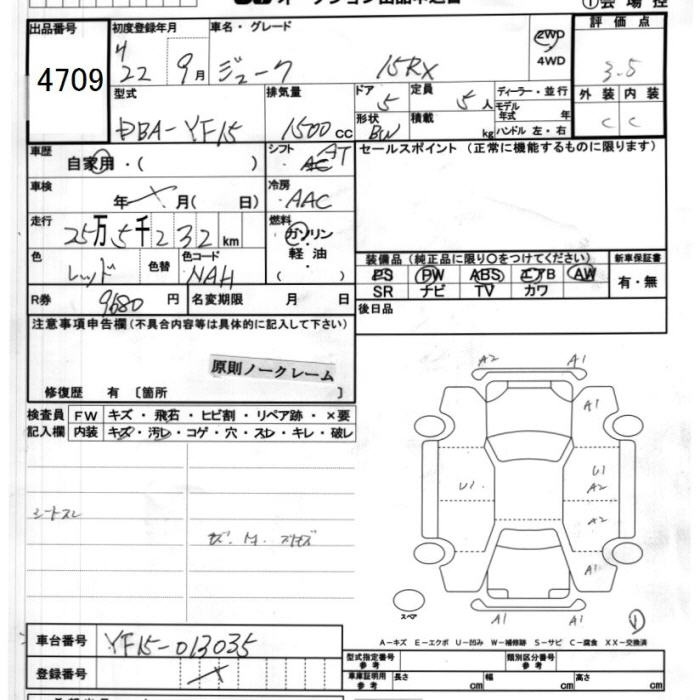 オークション出品申込書
①会場控
出品番号
4709
初度登録年月
H 22 9月
車名・グレード
ジューク 15RX
2WD
4WD
評価点
3.5
外装 内装
C C
型式
DBA-YF15
排気量
1500cc
ドア
5
定員
5人
ディーラー・並行
モデル年式 年
形状
BW
積載
kg
ハンドル 左・右
車歴
自家用・( )
シフト
AT
セールスポイント (正常に機能するものに限ります)
車検
年 月( 日)
冷房
AAC
走行
25万5千232km
燃料
ガソリン
軽油
( )
色
レッド
色替
色コード
NAH
装備品(純正品に限り〇をつけてください)
PS PW ABS エアB AW
SR ナビ TV カワ
新車保証書
有・無
R券
9680円
名変期限 月 日
後日品
注意事項申告欄(不具合内容等は具体的に記入して下さい)
原則ノークレーム
修復歴 有 〔箇所 〕
検査員記入欄
FW キズ・飛石・ヒビ割・リペア跡・×要
内装 キズ・汚レ・コゲ・穴・スレ・キレ・破レ
シートスレ
A2 A1
A1
U1
U1
A2
A2
A1
A1 A1
スペア
①
A－キズ E－エクボ U－凹み W－補修跡 S－サビ C－腐食 XX－交換済
車台番号
YF15-013035
登録番号
型式指定番号
参考
類別区分番号
参考
車庫証明用
参考
長さ cm
幅 cm
高さ cm